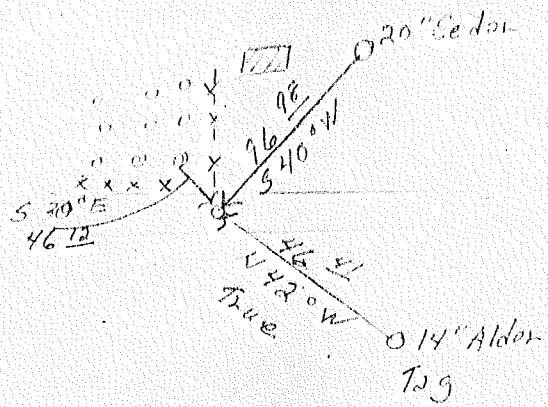 20" Cedar
96 98
S 40° W
S 20° E
46 12
46 41
N 42° W
True
14" Alder
Tag